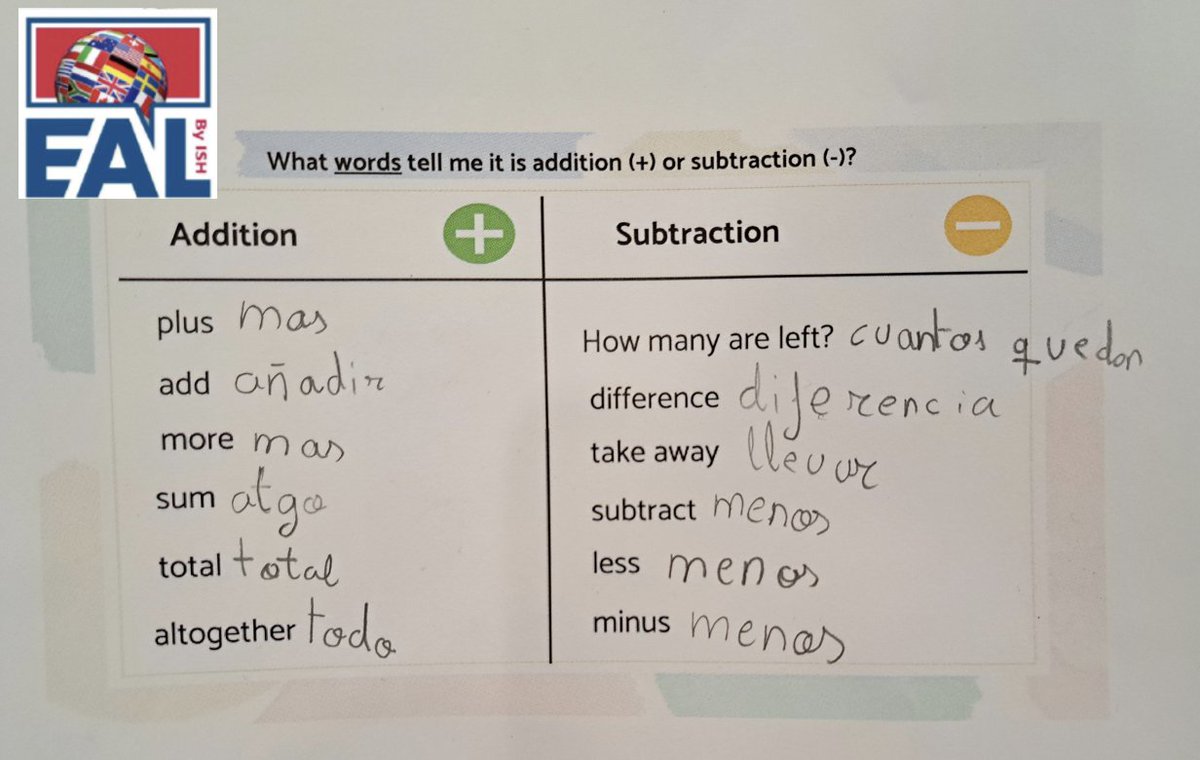 EAL By ISH
What words tell me it is addition (+) or subtraction (-)?
Addition +
plus mas
add añadir
more mas
sum atgo
total total
altogether todo
Subtraction -
How many are left? cuantos quedan
difference diferencia
take away llevar
subtract menos
less menos
minus menos